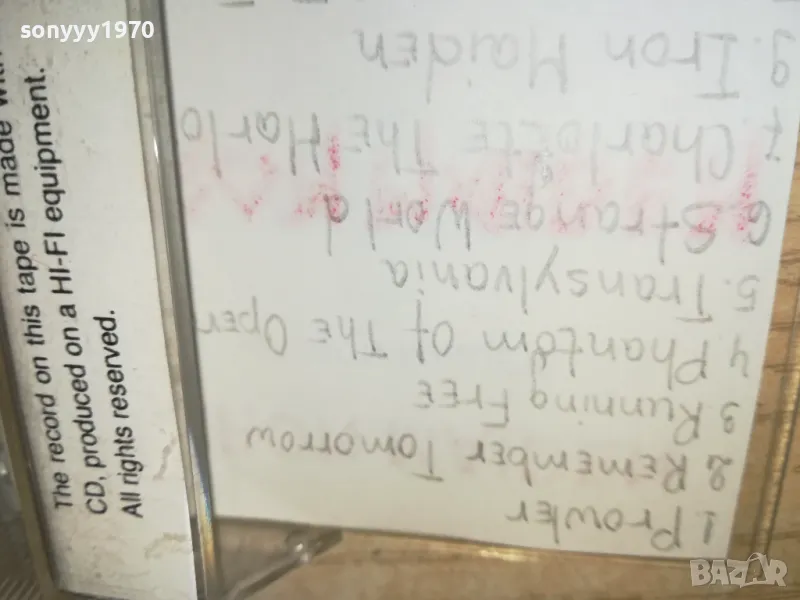 sonyyy1970
The record on this tape is made
CD, produced on a HI-FI equipment.
All rights reserved.
1 Prowler
2 REMEMBER Tomorrow
3 Running FREE
4 Phantom Of The Oper
5. Transylvania
6. Strange World
7. Charlotte The Harlo
9. Iron Maiden
BAZAR